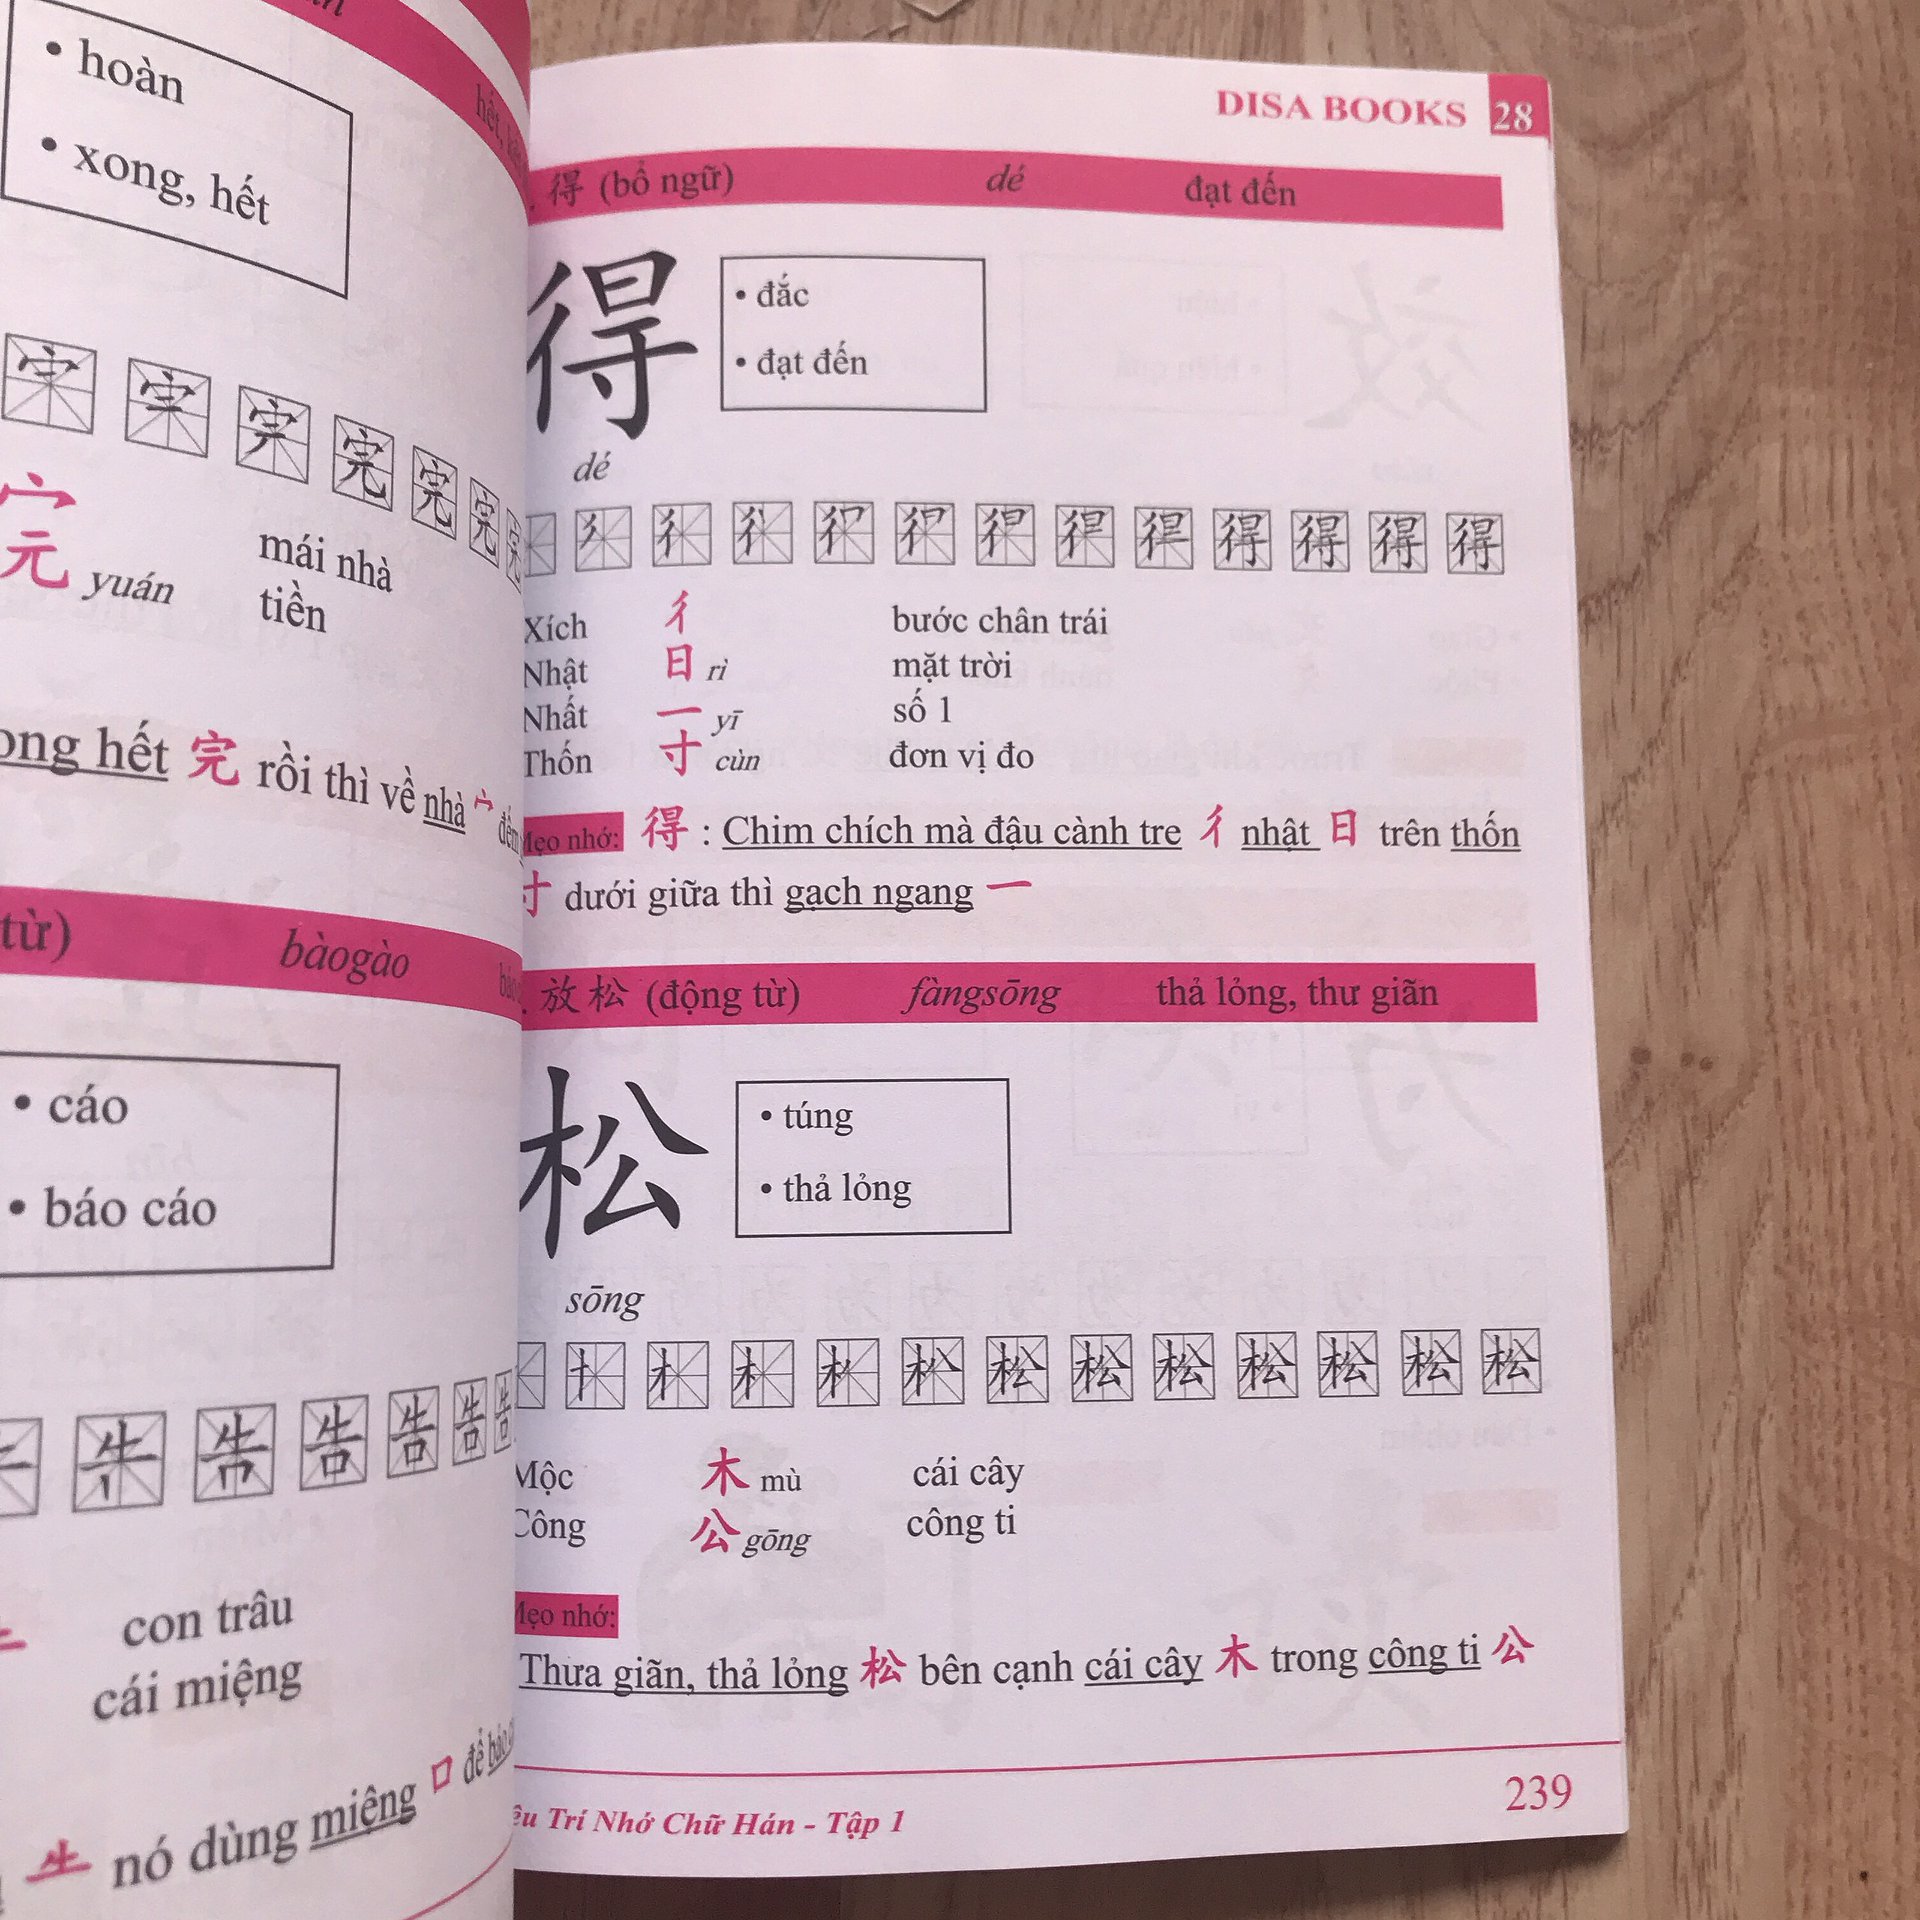 • hoàn
• xong, hết
完 yuán
mái nhà
tiền
hết 完 rồi thì về nhà 宀
từ) bàogào
• cáo
• báo cáo
con trâu
cái miệng
nó dùng miệng 口 để
DISA BOOKS 28
得 (bổ ngữ) dé đạt đến
得
• đắc
• đạt đến
dé
Xích 彳 bước chân trái
Nhật 日 rì mặt trời
Nhất 一 yī số 1
Thốn 寸 cùn đơn vị đo
Mẹo nhớ: 得 : Chim chích mà đậu cành tre 彳 nhật 日 trên thốn
寸 dưới giữa thì gạch ngang 一
放松 (động từ) fàngsōng thả lỏng, thư giãn
松
• túng
• thả lỏng
sōng
Mộc 木 mù cái cây
Công 公 gōng công ti
Mẹo nhớ:
Thưa giãn, thả lỏng 松 bên cạnh cái cây 木 trong công ti 公
Trí Nhớ Chữ Hán - Tập 1
239